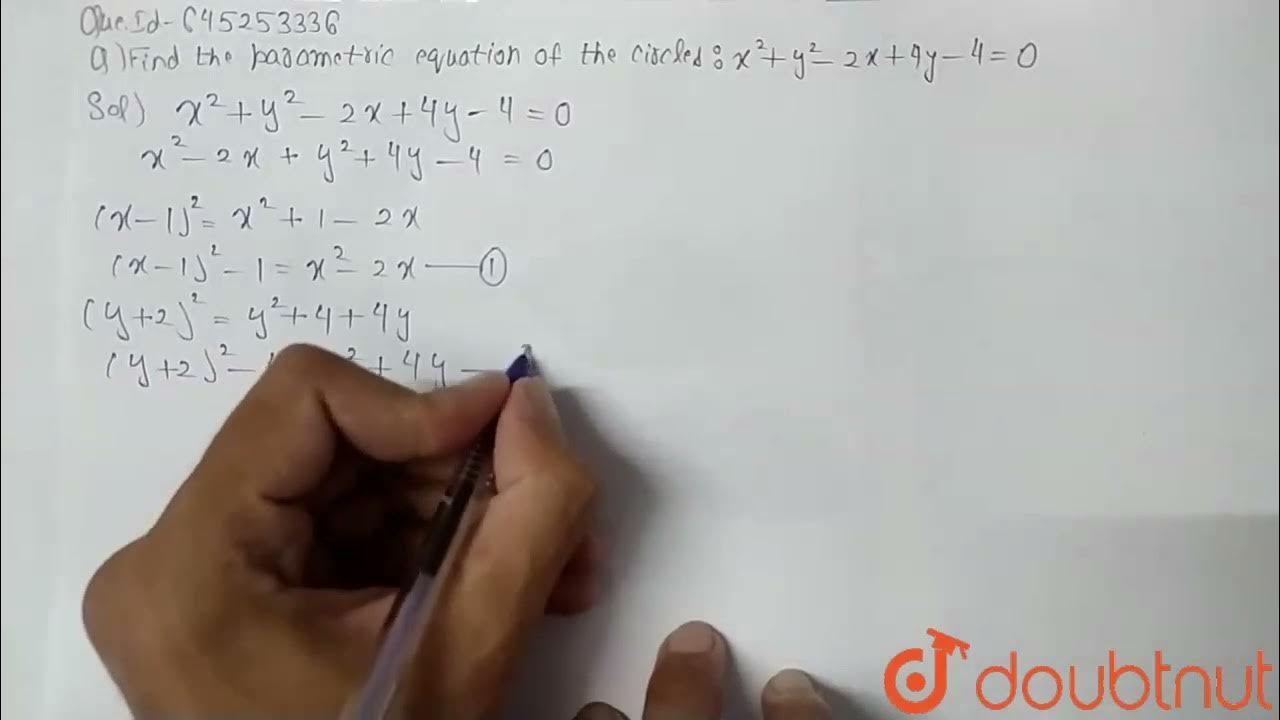 Que.Id-645253336
Q)Find the parametric equation of the circles: x²+y²-2x+4y-4=0
Sol) x²+y²-2x+4y-4=0
x²-2x+y²+4y-4=0
(x-1)²=x²+1-2x
(x-1)²-1=x²-2x—①
(y+2)²=y²+4+4y
(y+2)²- ²+4y—
doubtnut